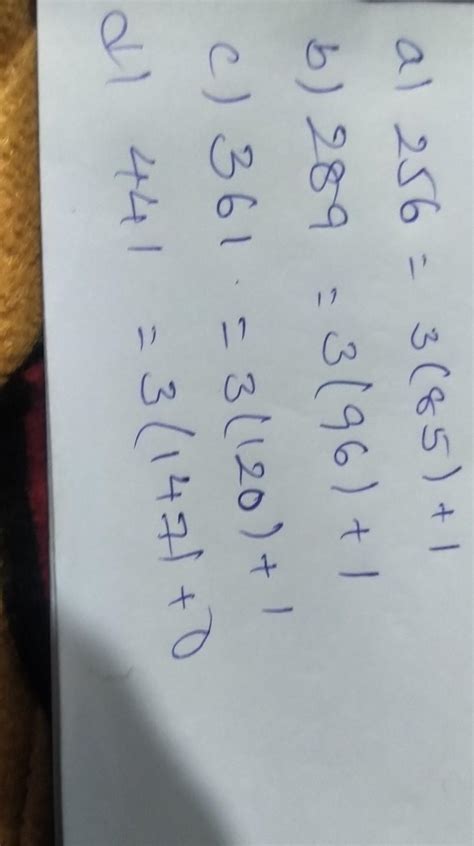 a) 256 = 3(85) + 1
b) 289 = 3(96) + 1
c) 361 = 3(120) + 1
d) 441 = 3(147) + 0